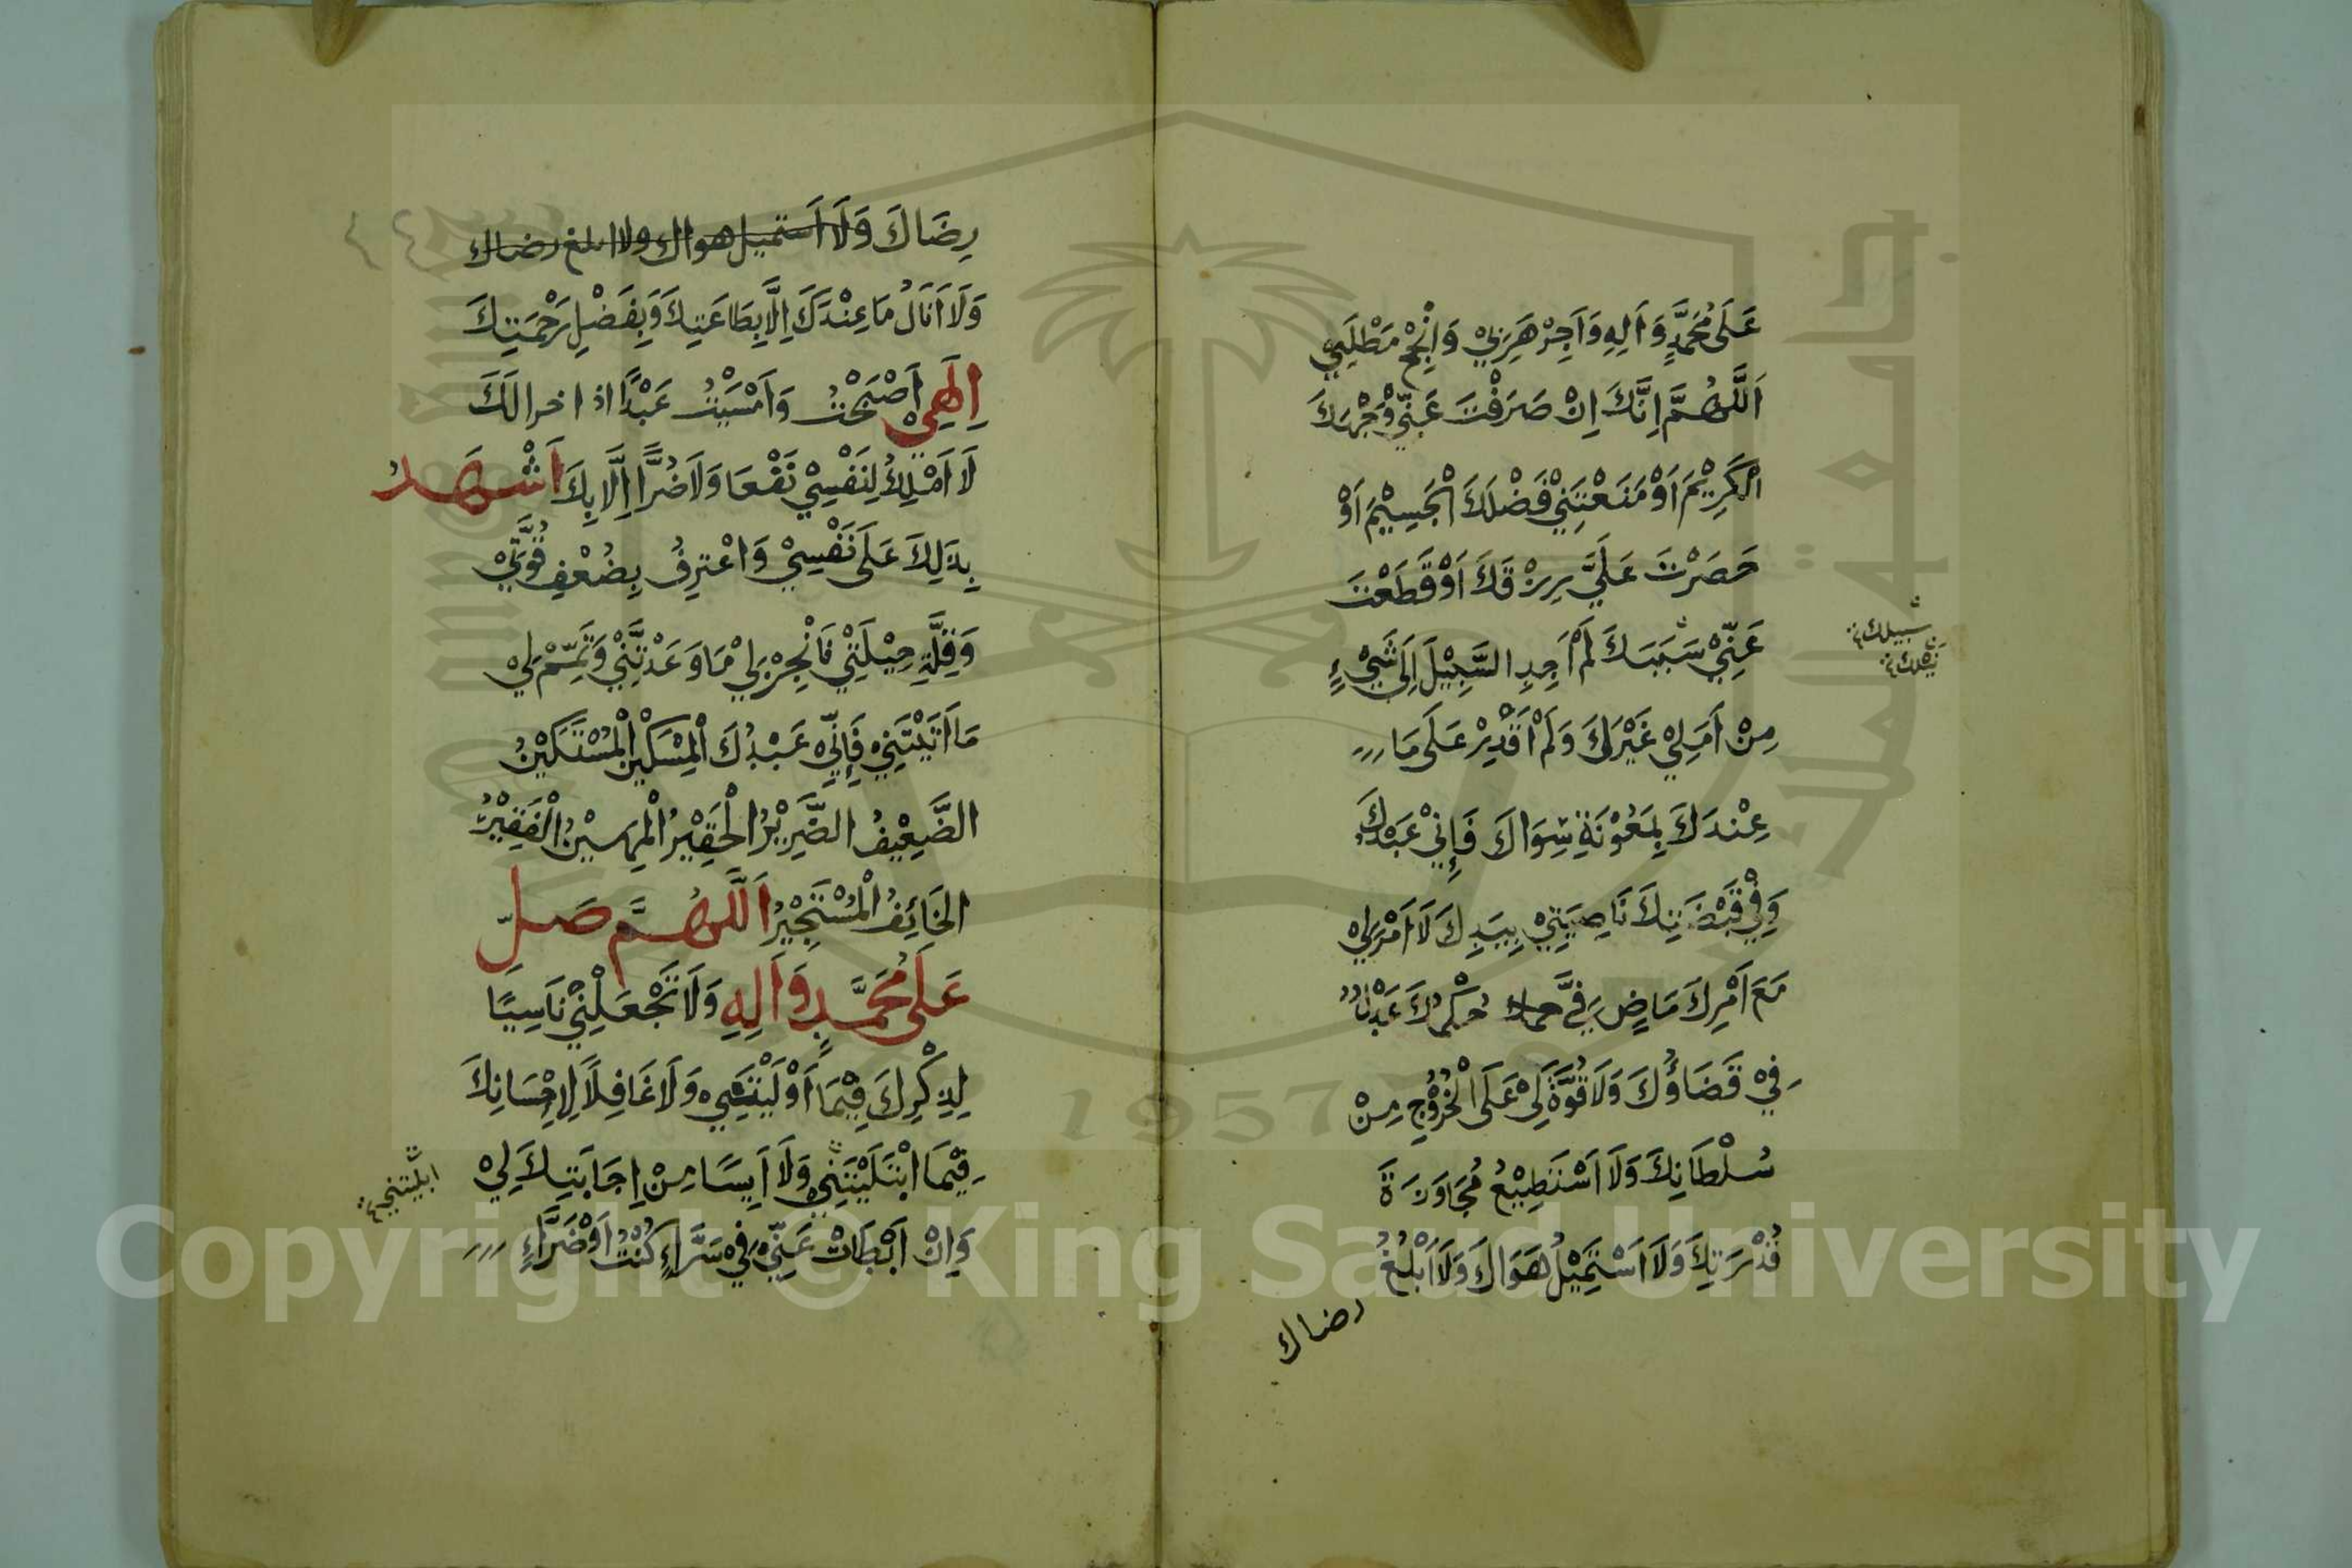 عَلَى مُحَمَّدٍ وَاَلِهِ وَاَجِرْ هَرَبِيْ وَانْجِحْ مَطْلَبِيْ
اَللّٰهُمَّ اِنَّكَ اِنْ صَرَفْتَ عَنِّيْ وَجْهَكَ
الْكَرِيْمَ اَوْ مَنَعْتَنِيْ فَضْلَكَ الْجَسِيْمَ اَوْ
حَصَرْتَ عَلَيَّ رِزْقَكَ اَوْ قَطَعْتَ
عَنِّيْ سَبَبَكَ لَمْ اَجِدِ السَّبِيْلَ اِلَى شَيْءٍ
سبيلك
مِنْ اَمَلِيْ غَيْرَكَ وَلَمْ اَقْدِرْ عَلَى مَا
عِنْدَكَ بِمَعُوْنَةِ سِوَاكَ فَاِنِّيْ عَبْدُكَ
وَفِيْ قَبْضَتِكَ نَاصِيَتِيْ بِيَدِكَ لَا اَمْرَ لِيْ
مَعَ اَمْرِكَ مَاضٍ فِيَّ حُكْمُكَ عَدْلٌ
فِيَّ قَضَاؤُكَ وَلَا قُوَّةَ لِيْ عَلَى الْخُرُوْجِ مِنْ
سُلْطَانِكَ وَلَا اَسْتَطِيْعُ مُجَاوَزَةَ
قُدْرَتِكَ وَلَا اَسْتَمِيْلُ هَوَاكَ وَلَا اَبْلُغُ
رضاك
رِضَاكَ وَلَا اَستميل هواك ولا ابلغ رضاك
وَلَا اَنَالُ مَا عِنْدَكَ اِلَّا بِطَاعَتِكَ وَبِفَضْلِ رَحْمَتِكَ
اِلَهِيْ اَصْبَحْتُ وَاَمْسَيْتُ عَبْدًا داخرا لَكَ
لَا اَمْلِكُ لِنَفْسِيْ نَفْعًا وَلَا ضُرًّا اِلَّا بِكَ اَشْهَدُ
بِذَلِكَ عَلَى نَفْسِيْ وَاعْتَرِفُ بِضُعْفِ قُوَّتِيْ
وَقِلَّةِ حِيْلَتِيْ فَانْجِزْ لِيْ مَا وَعَدْتَّنِيْ وَتَمِّمْ لِيْ
مَا اَتَيْتَنِيْ فَاِنِّيْ عَبْدُكَ الْمِسْكِيْنُ الْمُسْتَكِيْنُ
الضَّعِيْفُ الضَّرِيْرُ الْحَقِيْرُ الْمَهِيْنُ الْفَقِيْرُ
الْخَائِفُ الْمُسْتَجِيْرُ اَللّٰهُمَّ صَلِّ
عَلَى مُحَمَّدٍ وَاَلِهِ وَلَا تَجْعَلْنِيْ نَاسِيًا
لِذِكْرِكَ فِيْمَا اَوْلَيْتَنِيْ وَلَا غَافِلًا لِاِحْسَانِكَ
فِيْمَا ابْتَلَيْتَنِيْ وَلَا اَيِسًا مِنْ اِجَابَتِكَ لِيْ
ابليتني
وَاِنْ اَبْطَاَتْ عَنِّيْ فِيْ سَرَّاءٍ كُنْتُ اَوْ ضَرَّاءٍ
جامعة الملك سعود
1957
Copyright © King Saud University